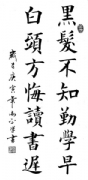 黑髮不知勤學早
白頭方悔讀書遲
歲次庚寅年